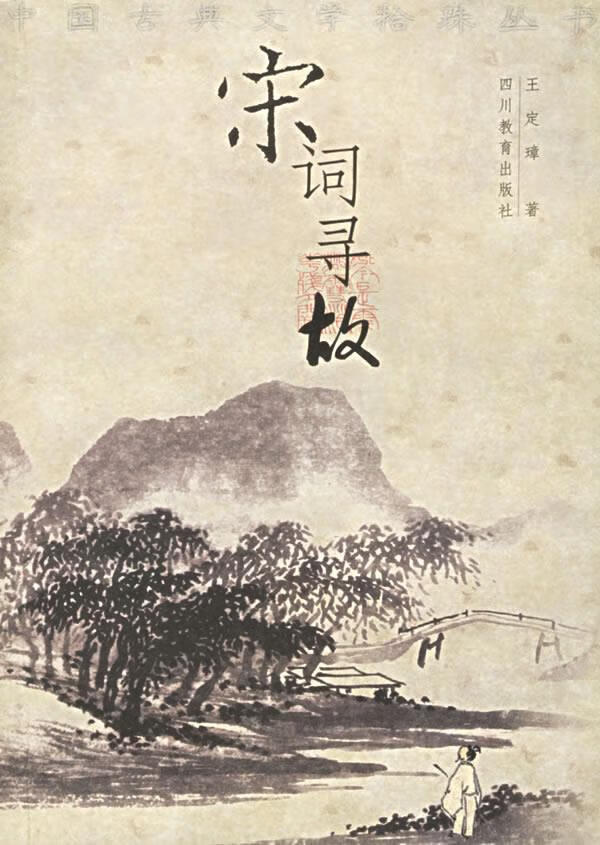 中国古典文学拾珠丛书
宋词寻故
王定璋 著
四川教育出版社